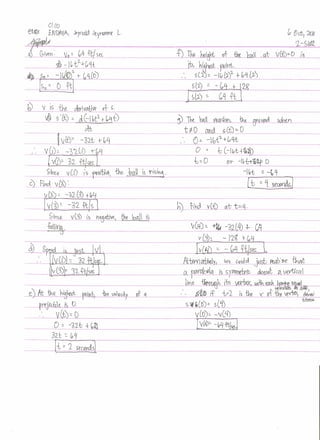 a) Given: V₀ = 64 ft/sec
s = -16t² + 64t
S₀ = -16(0)² + 64(0)
S₀ = 0 ft
b) V is the derivative of S.
s'(t) = d(-16t²+64t)
dt
v(t) = -32t + 64
∴ v(1) = -32(1) + 64
v(1) = 32 ft/sec
Since v(1) is positive, the ball is rising.
c) Find v(3)
v(3) = -32(3) + 64
v(3) = -32 ft/s
Since v(3) is negative, the ball is
falling.
d) Speed is just |v|
|v(1)| = 32 ft/sec
|v(3)| = 32 ft/sec
e) At the highest point, the velocity of a
projectile is 0
v(t) = 0
0 = -32t + 64
32t = 64
t = 2 seconds
6 Oct, 2021
f) The height of the ball at v(t)=0 is
its highest point.
∴ s(2) = -16(2)² + 64(2)
s(2) = -64 + 128
s(2) = 64 ft
g) The ball reaches the ground when
t≠0 and s(t)=0
∴ 0 = -16t² + 64t
0 = t(-16t+64)
t=0 or -16t+64=0
-16t = -64
t = 4 seconds
h) Find v(t) at t=4.
v(4) = -32(4) + 64
v(4) = -128 + 64
v(4) = -64 ft/sec
Alternatively, we could just realize that
a parabola is symmetric about a vertical
line through its vertex, with each
∴ if t=2 is the v of the vertex,
s(0) = s(4)
v(0) = -v(4)
v(4) = -64 ft/sec